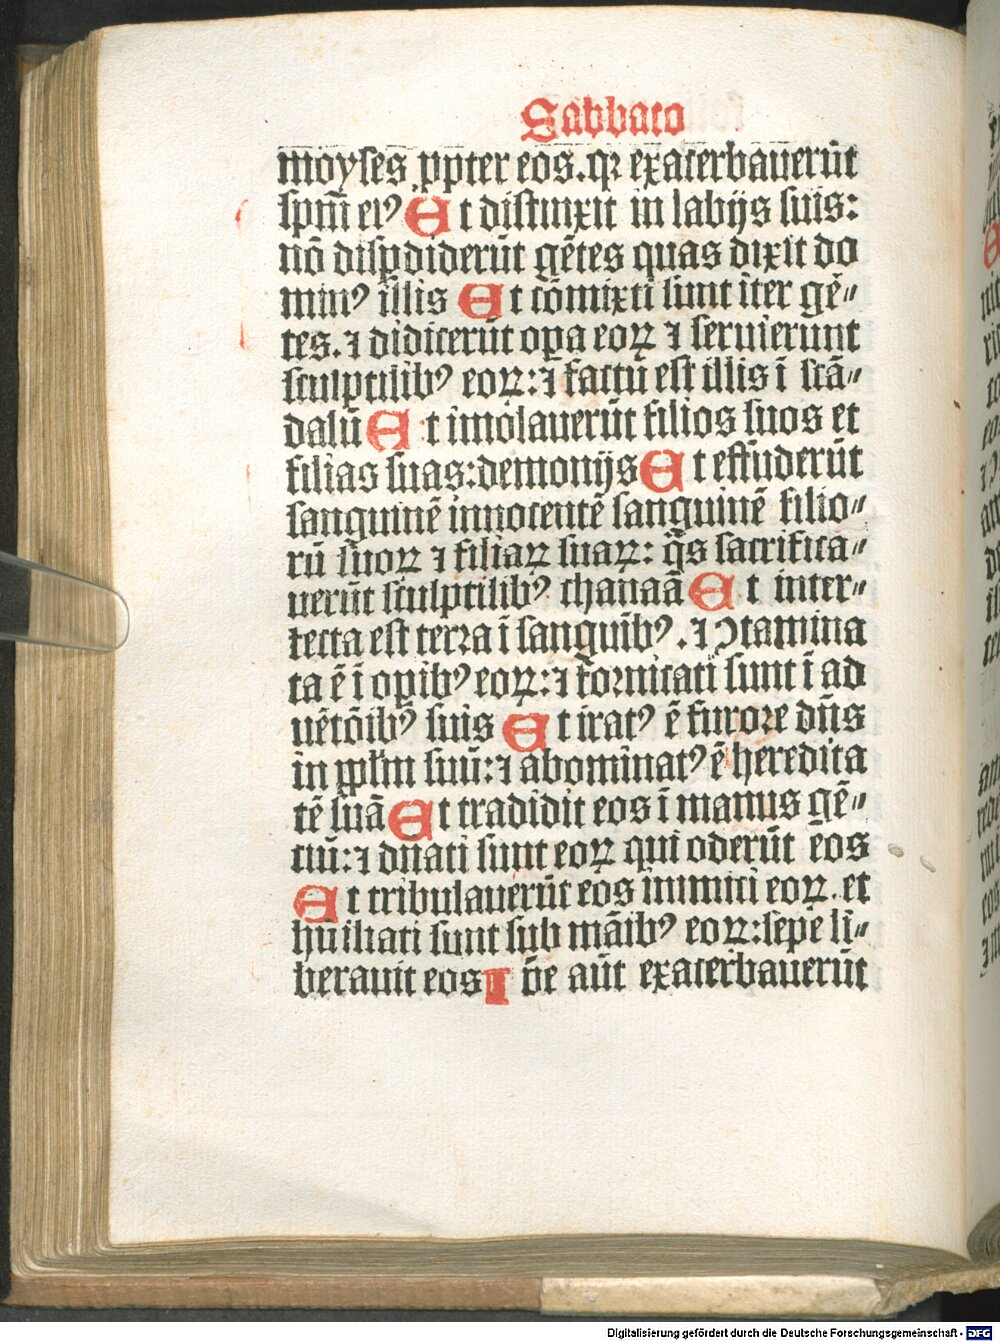 Sabbato
moyses ꝓpter eos.qꝛ exacerbauerūt
spm̄ eiꝰ Et distinxit in labijs suis:
nō disꝑdiderūt gētes quas dixit do
minꝰ illis Et cōmixti sunt īter gē〃
tes.⁊ didicerūt oꝑa eoꝝ ⁊ seruierunt
sculptilibꝰ eoꝝ:⁊ factū est illis ī scā〃
dalū Et imolauerūt filios suos et
filias suas:demonijs Et effuderūt
sanguinē innocentē sanguinē filio〃
rū suoꝝ ⁊ filiaꝝ suaꝝ: q̄s sacrifica〃
uerūt sculptilibꝰ chanaā Et inter〃
fecta est terra ī sanguībꝰ.⁊ ꝯtamina
ta ē ī oꝑibꝰ eoꝝ:⁊ fornicati sunt ī ad
uētōibꝰ suis Et iratꝰ ē furore dn̄s
in ppl̄m suū:⁊ abominatꝰ ē heredita
tē suā Et tradidit eos ī manus gē〃
tiū:⁊ dn̄ati sunt eoꝝ qui oderūt eos
Et tribulauerūt eos inimici eoꝝ.et
hūiliati sunt sub māibꝰ eoꝝ:sepe li〃
berauit eos Ip̄i aūt exacerbauerūt
Digitalisierung gefördert durch die Deutsche Forschungsgemeinschaft - DFG